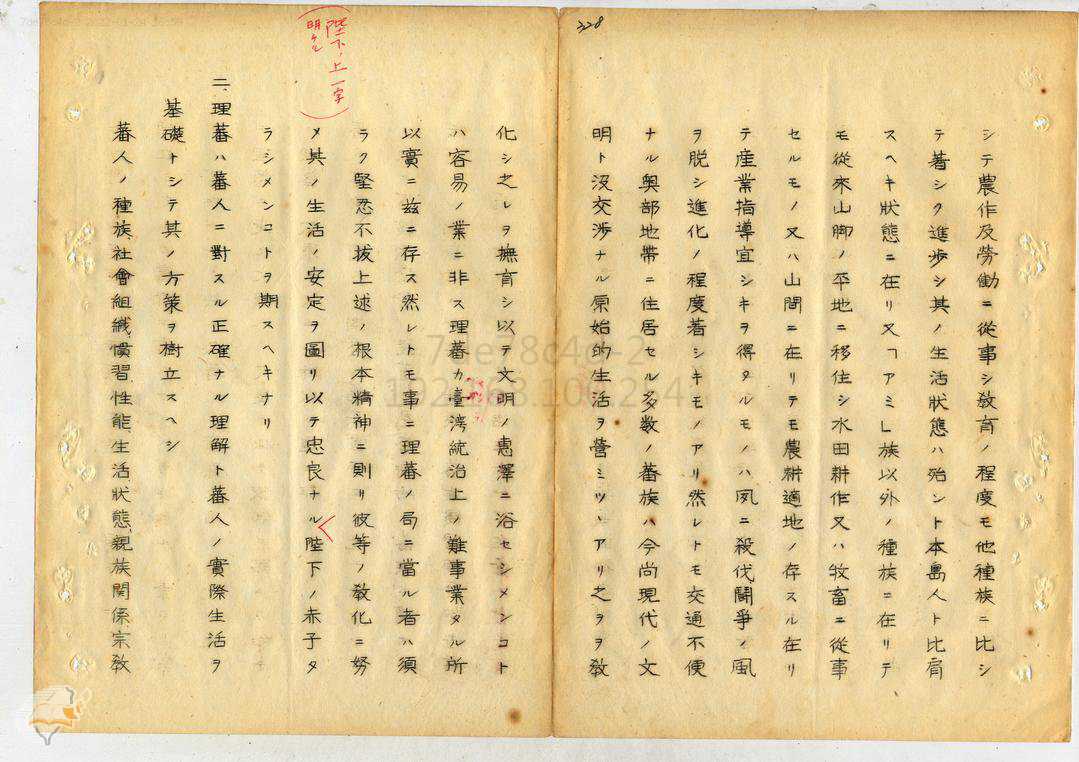 328
シテ農作及勞働ニ從事シ敎育ノ程度モ他種族ニ比シ
テ著シク進歩シ其ノ生活狀態ハ殆ント本島人ト比肩
スヘキ狀態ニ在リ又「アミ」族以外ノ種族ニ在リテ
モ從來山脚ノ平地ニ移住シ水田耕作又ハ牧畜ニ從事
セルモノ又ハ山間ニ在リテモ農耕適地ノ存スル在リ
テ産業指導宜シキヲ得タルモノハ夙ニ殺伐鬪爭ノ風
ヲ脱シ進化ノ程度著シキモノアリ然レトモ交通不便
ナル奧部地帶ニ住居セル多數ノ蕃族ハ今尚現代ノ文
明ト沒交渉ナル原始的生活ヲ營ミツヽアリ之ヲヲ敎
化シ之レヲ撫育シ以テ文明ノ惠澤ニ浴セシメンコト
ハ容易ノ業ニ非ス理蕃カ臺灣統治上ノ難事業タル所
以實ニ玆ニ存ス然レトモ事ニ理蕃ノ局ニ當ル者ハ須
ラク堅忍不拔上述ノ根本精神ニ則リ彼等ノ敎化ニ努
メ其ノ生活ノ安定ヲ圖リ以テ忠良ナル陛下ノ赤子タ
(陛下ノ上一字
明ケル)
ラシメンコトヲ期スヘキナリ
二、理蕃ハ蕃人ニ對スル正確ナル理解ト蕃人ノ實際生活ヲ
基礎トシテ其ノ方策ヲ樹立スヘシ
蕃人ノ種族社會組織、慣習性能、生活狀態、親族關係宗敎
7ee78c4d-2
192.168.100.254